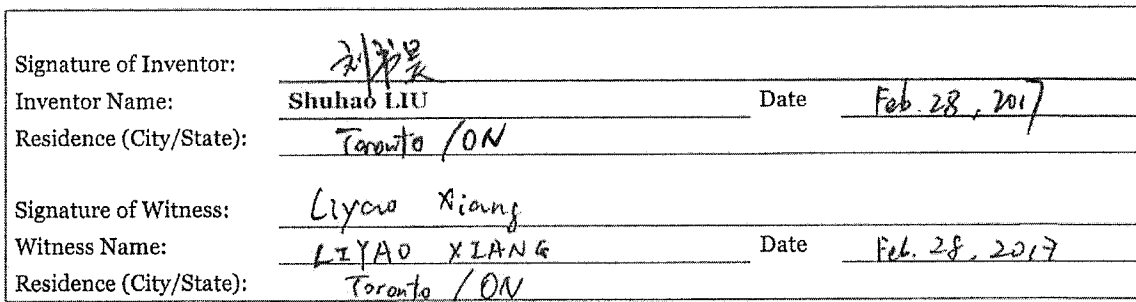 Signature of Inventor: 刘书昊
Inventor Name: Shuhao LIU Date Feb. 28, 2017
Residence (City/State): Toronto / ON
Signature of Witness: Liyao Xiang
Witness Name: LIYAO XIANG Date Feb. 28, 2017
Residence (City/State): Toronto / ON